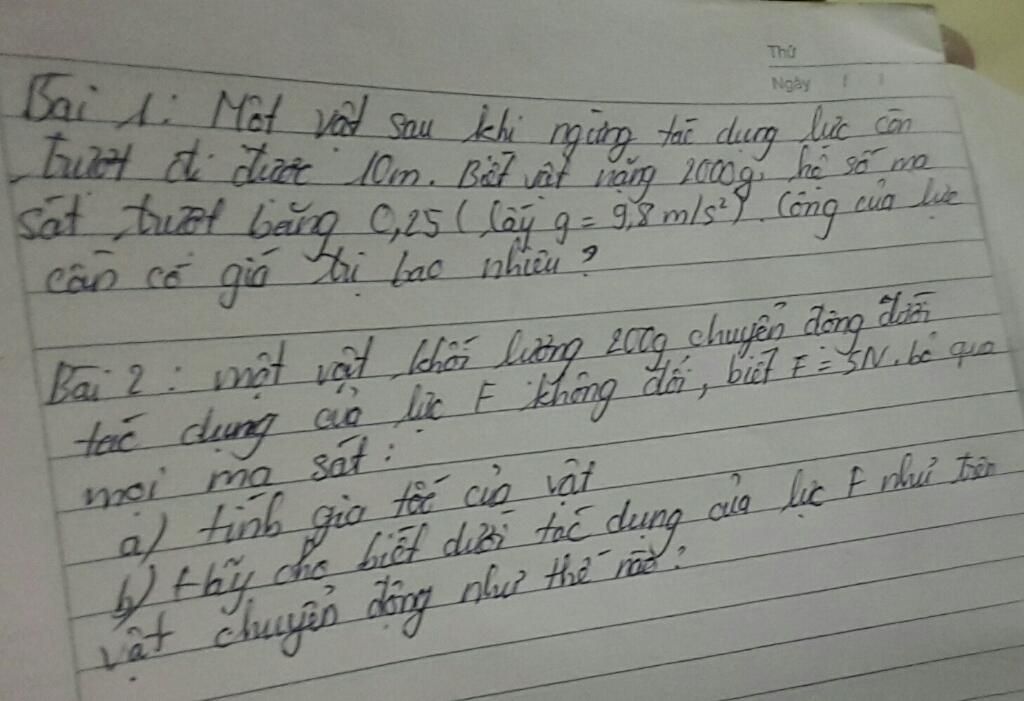 Thứ
Ngày / /
Bài 1: Một vật sau khi ngừng tác dụng lực còn
trượt đi được 10m. Biết vật nặng 2000g, hệ số ma
sát trượt bằng 0,25 (lấy g = 9,8 m/s²). Công của lực
cản có giá trị bao nhiêu?
Bài 2: một vật khối lượng 200g chuyển động dưới
tác dụng của lực F không đổi, biết F = 5N. bỏ qua
mọi ma sát:
a) tính gia tốc của vật
b) Hãy cho biết dưới tác dụng của lực F như trên
vật chuyển động như thế nào?